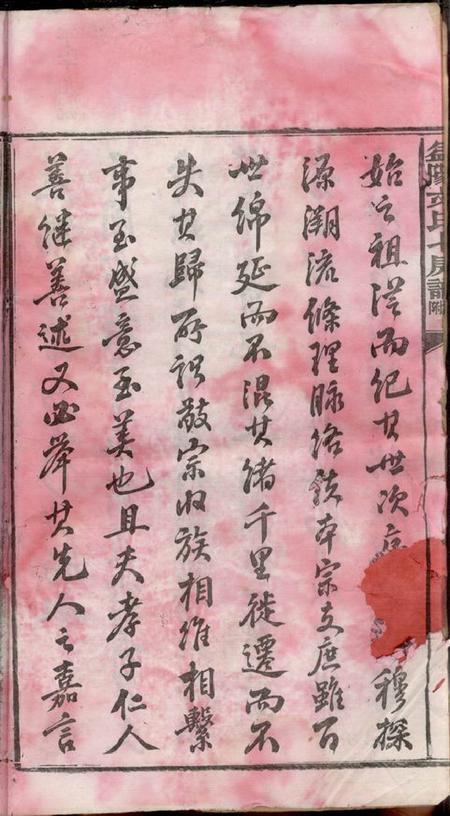 益陽文氏七房譜 附
始之祖從而紀其世次序穆探
源溯流條理脉络本宗支庶雖百
世綿延而不混其緒千里徙遷而不
失其歸所謂敬宗收族相維相繫
事至盛意至美也且夫孝子仁人
善继善述又必举其先人之嘉言